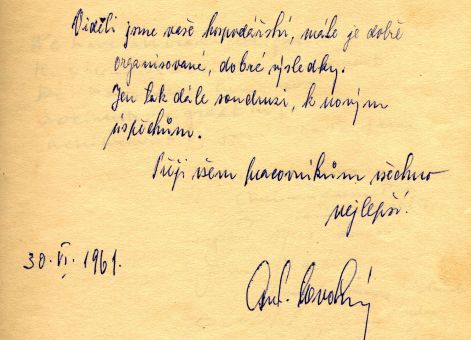 Viděli jsme vaše hospodářství, máte je dobře
organisované, dobré výsledky.
Jen tak dále soudruzi, k novým
úspěchům.
Přeji všem pracovníkům všechno
nejlepší!
30. VI. 1961.
Ant. Novotný